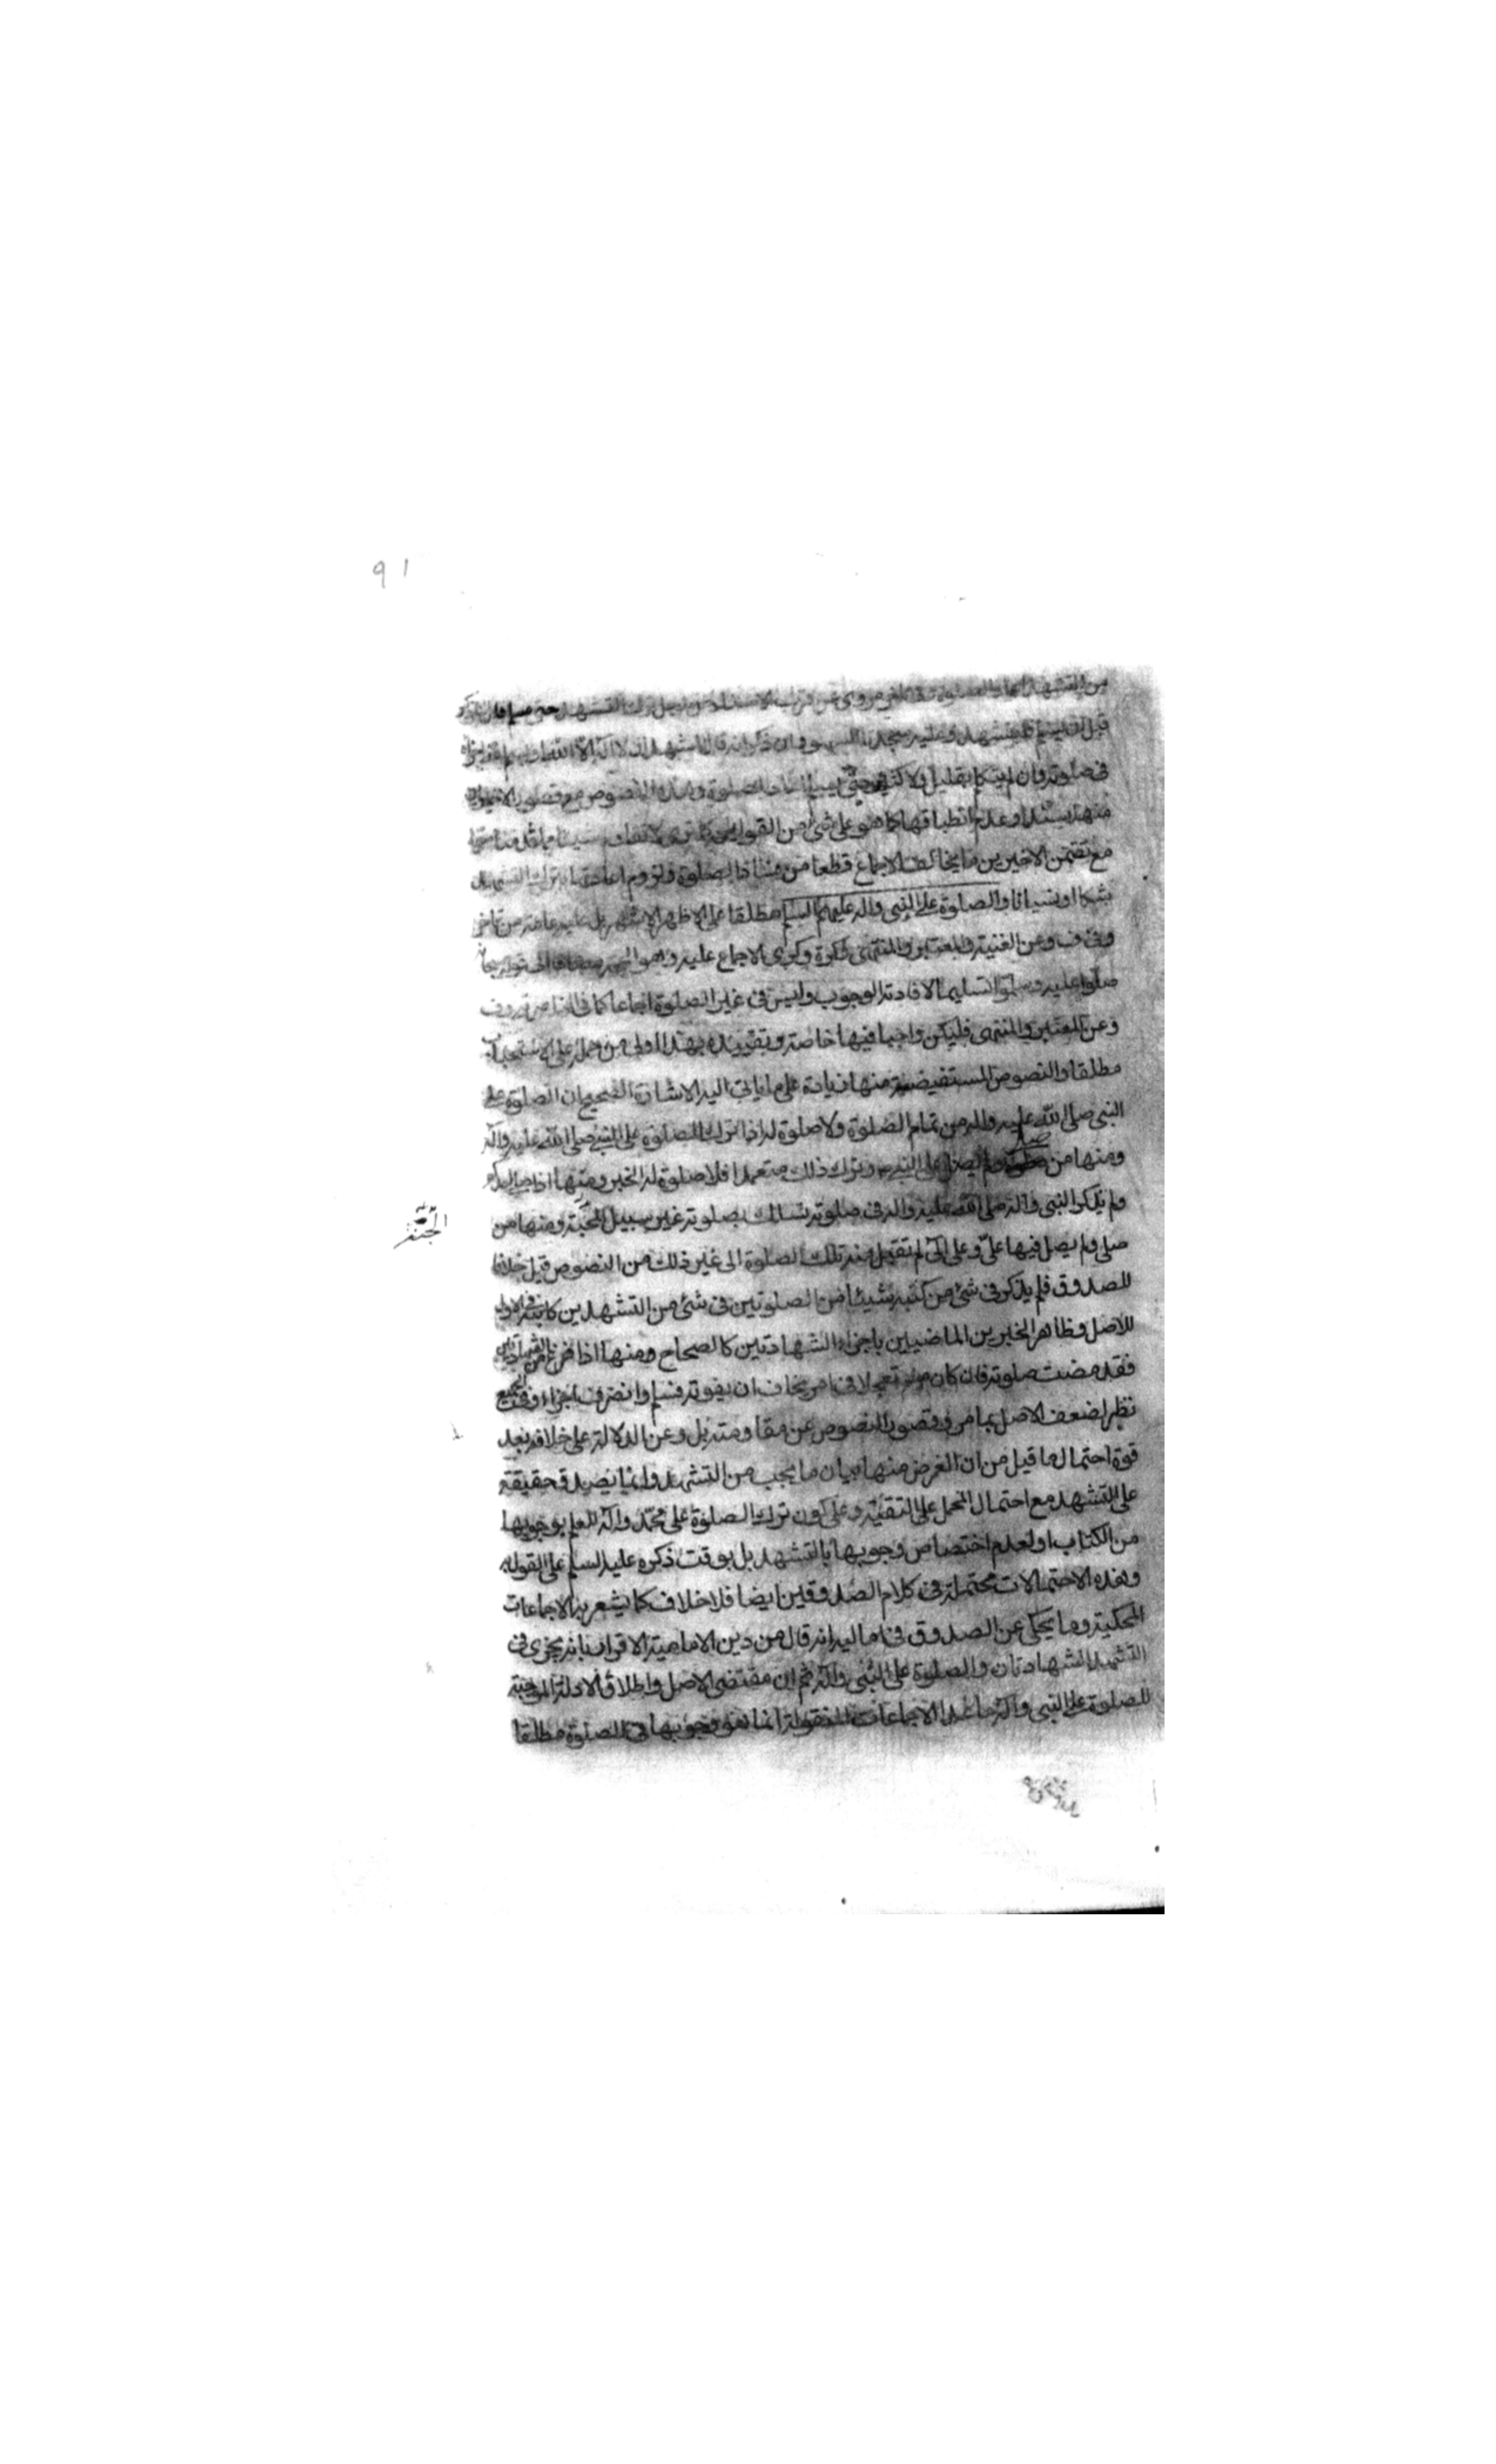 ٩١
من التشهد
قبل ان يسلم فليتشهد وعليه سجدتا السهو وان ذكر انه قال اشهد ان لا اله الا الله او بسم الله
في صلوته وان لم يتكلم بقليل ولا كثير حتى يسلم اعاد الصلوة وهذه النصوص مع قصور
منها سندا وعدم انطباقها كما هو على شئ من القولين كما ترى
مع تضمن الاخيرين ما يخالف الاجماع قطعا من فساد الصلوة ولزوم اعادتها بترك التشهد
شكا او نسيانا والصلوة على النبي واله عليهم السلم مطلقا على الاظهر الاشهر بل عليه عامة من تاخر
وفي ف وعن الغنية والمعتبر والمنتهى وكرة وكرى الاجماع عليه وهو الحجة مضافا الى قوله سبحانه
صلوا عليه وسلموا تسليما لافادته الوجوب وليس في غير الصلوة اجماعا كما في الناصرية وف
وعن المعتبر والمنتهى فليكن واجبا فيها خاصة وتقييده بهذا اولى من حمله على الاستحباب
مطلقا والنصوص المستفيضة منها زيادة على ما ياتي اليه الاشارة الصحيح ان الصلوة على
النبي صلى الله عليه واله من تمام الصلوة ولا صلوة له اذا ترك الصلوة على النبي صلى الله عليه واله
ومنها من صلى ولم يصل على النبي ص وترك ذلك متعمدا فلا صلوة له الخبر ومنها اذا صلى احدكم
ولم يذكر النبي واله صلى الله عليه واله في صلوته تسالك بصلوته غير سبيل الجنة ومنها من
الجنة
صلى ولم يصل فيها علي وعلى الي لم تقبل منه تلك الصلوة الى غير ذلك من النصوص قيل خلافا
للصدوق فلم يذكر في شئ من كتبه شيئا من الصلوتين في شئ من التشهدين كابيه في الاول
للاصل وظاهر الخبرين الماضيين باجزاء الشهادتين كالصحاح ومنها اذا فرغ من الشهادتين
فقد مضت صلوته فان كان مستعجلا في امر يخاف ان يفوته فسلم وانصرف اجزاه وفي الجميع
نظر لضعف الاصل بما مر وقصور النصوص عن مقاومته بل وعن الدلالة على خلافه بعد
قوة احتمال ما قيل من ان الغرض منها بيان ما يجب من التشهد وانما يصدق حقيقة
على التشهد مع احتمال الحمل على التقية وعلى كون ترك الصلوة على محمد واله للعلم بوجوبها
من الكتاب او لعدم اختصاص وجوبها بالتشهد بل بوقت ذكره عليه السلم على القول به
وهذه الاحتمالات محتملة في كلام الصدوقين ايضا فلا خلاف كما يشعر به الاجماعات
المحكية وما يحكى عن الصدوق في اماليه انه قال من دين الامامية الاقرار بانه يجزى في
التشهد الشهادتان والصلوة على النبي واله ثم ان مقتضى الاصل واطلاق الادلة الموجبة
للصلوة على النبي واله ما عدا الاجماعات المنقولة انما هو وجوبها في الصلوة مطلقا